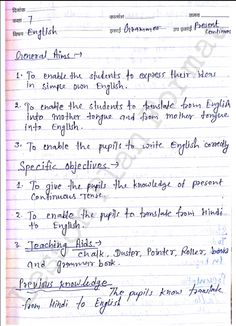 दिनांक कालांश समय
कक्षा 7
विषय English इकाई Grammar उप इकाई Present Continuous
General Aims →
1. To enable the students to express their ideas
in simple own English.
2. To enable the students to translate from English
into mother tongue and from mother tongue
into English.
3. To enable the pupils to write English correctly
Specific objectives →
1. To give the pupils the knowledge of present
Continuous Tense.
2. To enable the pupils to translate from Hindi
to English.
3. Teaching Aids →
chalk, Duster, Pointer, Roller,
and grammar book.
Previous knowledge
The pupils know translate
from Hindi to English